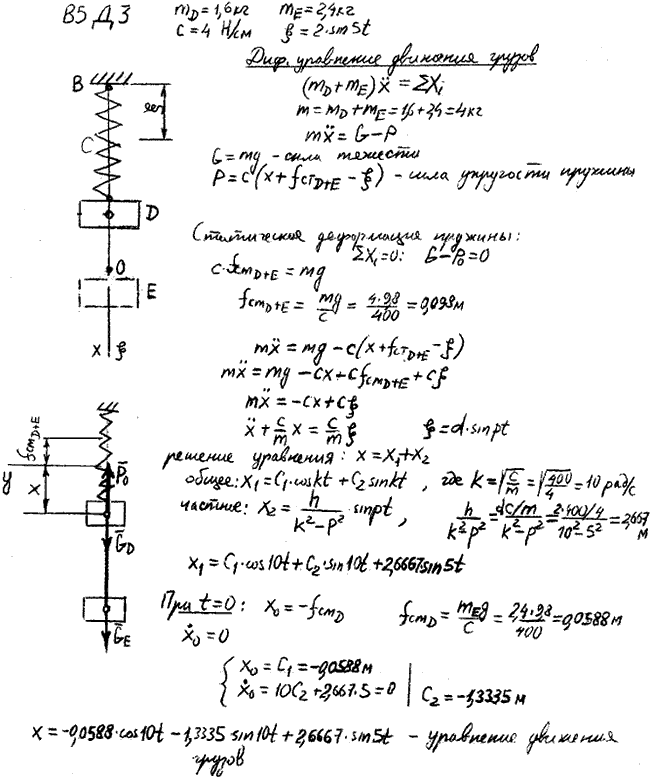 В5Д3
m_D = 1,6 кг m_E = 2,4 кг
c = 4 Н/см ξ = 2·sin5t
Диф. уравнение движения грузов
(m_D + m_E)ẍ = ΣX_i
m = m_D + m_E = 1,6 + 2,4 = 4 кг
mẍ = G − P
G = mg – сила тяжести
P = c(x + f_стD+E − ξ) – сила упругости пружины
B
C
D
O
E
x ξ
Статическая деформация пружины:
ΣX_i = 0: G − P₀ = 0
c·f_стD+E = mg
f_стD+E = mg/c = 4·9,8/400 = 0,098 м
mẍ = mg − c(x + f_стD+E − ξ)
mẍ = mg − cx + cf_стD+E + cξ
mẍ = −cx + cξ
ẍ + c/m x = c/m ξ ξ = d·sin pt
решение уравнения: x = x₁ + x₂
общее: x₁ = C₁·cos kt + C₂ sin kt, где k = √(c/m) = √(400/4) = 10 рад/с
частное: x₂ = h/(k² − p²)·sin pt, h/(k² − p²) = (dc/m)/(k² − p²) = (2·400/4)/(10² − 5²) = 2,667 м
x₁ = C₁·cos10t + C₂·sin10t + 2,6667 sin5t
f_стD+E
y
x
P̄₀
Ḡ_D
Ḡ_E
При t=0: x₀ = −f_стD f_стD = m_E g/c = 2,4·9,8/400 = 0,0588 м
ẋ₀ = 0
x₀ = C₁ = −0,0588 м
ẋ₀ = 10C₂ + 2,667·5 = 0 | C₂ = −1,3335 м
x = −0,0588·cos10t − 1,3335 sin10t + 2,6667·sin5t – уравнение движения
грузов